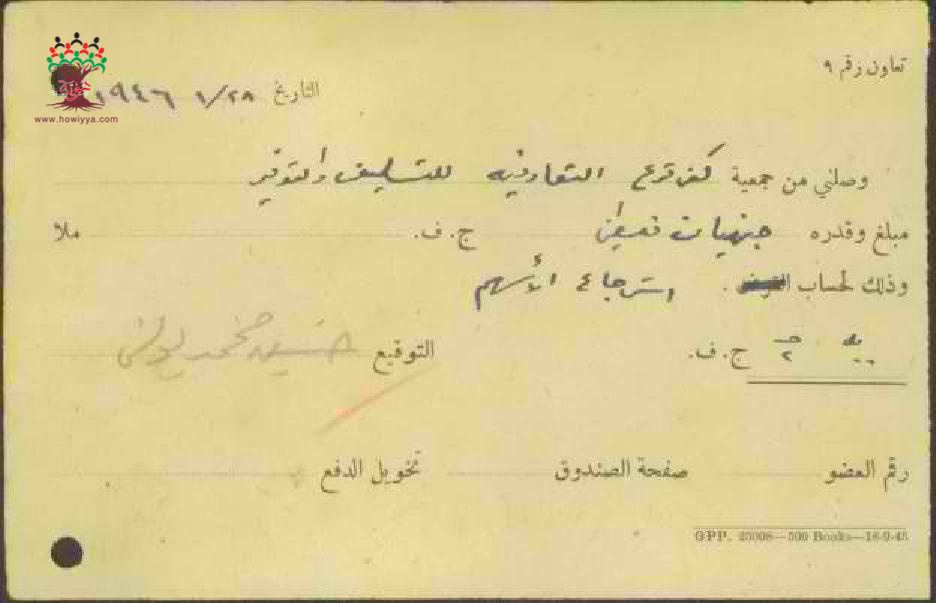 تعاون رقم ٩
التاريخ ٢٨/١ ١٩٤٦
www.howiyya.com
وصلني من جمعية كفر قرع التعاونية للتسليف والتوفير
مبلغ وقدره جنيهان فقط ج. ف. ملا
وذلك لحساب استرجاع الأسهم
ج. ف. التوقيع حسين محمد
رقم العضو صفحة الصندوق تخويل الدفع
GPP. 20008—500 Books—18-9-45